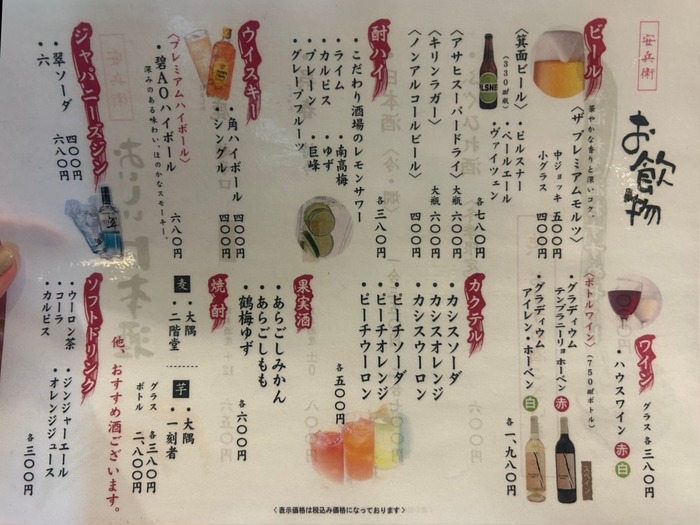 安兵衛
お飲物
ビール
華やかな香りと深いコク。
〈ザ プレミアムモルツ〉
中ジョッキ 五〇〇円
小グラス 四〇〇円
〈箕面ビール〉
(330ml瓶)
・ピルスナー
・ペールエール
・ヴァイツェン
各七八〇円
〈アサヒスーパードライ〉大瓶 六〇〇円
〈キリンラガー〉大瓶 六〇〇円
〈ノンアルコールビール〉四〇〇円
酎ハイ
・こだわり酒場のレモンサワー
・ライム
・カルピス
・プレーン
・グレープフルーツ
・南高梅
・ゆず
・巨峰
各三八〇円
ウイスキー
・角ハイボール 四〇〇円
・シングル 四〇〇円
〈プレミアムハイボール〉
・碧AOハイボール 六八〇円
深みのある味わい。ほのかなスモーキー。
ジャパニーズジン
・翠ソーダ 四〇〇円
・六 六八〇円
ワイン
グラス 各三八〇円
・ハウスワイン 赤 白
〈ボトルワイン〉(750mlボトル)
・グラディウム
テンプラニーリョホーベン 赤
・グラディウム
アイレン・ホーベン 白
各一、九八〇円
スペイン
カクテル
・カシスソーダ
・カシスオレンジ
・カシスウーロン
・ピーチソーダ
・ピーチオレンジ
・ピーチウーロン
各五〇〇円
果実酒
・あらごしみかん
・あらごしもも
・鶴梅ゆず
各六〇〇円
焼酎
麦
・大隅
・二階堂
芋
・大隅
・一刻者
グラス 各三八〇円
ボトル 二、八〇〇円
他、おすすめ酒ございます。
ソフトドリンク
・ウーロン茶
・コーラ
・カルピス
・ジンジャーエール
・オレンジジュース
各三〇〇円
〈表示価格は税込み価格になっております〉